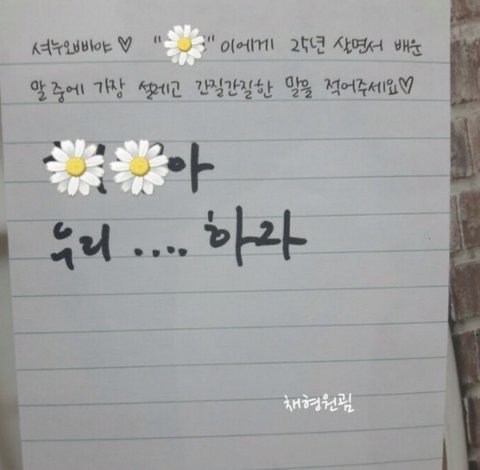 셔누오빠야♡ " "이에게 25년 살면서 배운
말 중에 가장 설레고 간질간질한 말을 적어주세요♡
아
우리 .... 하라
채형원굄